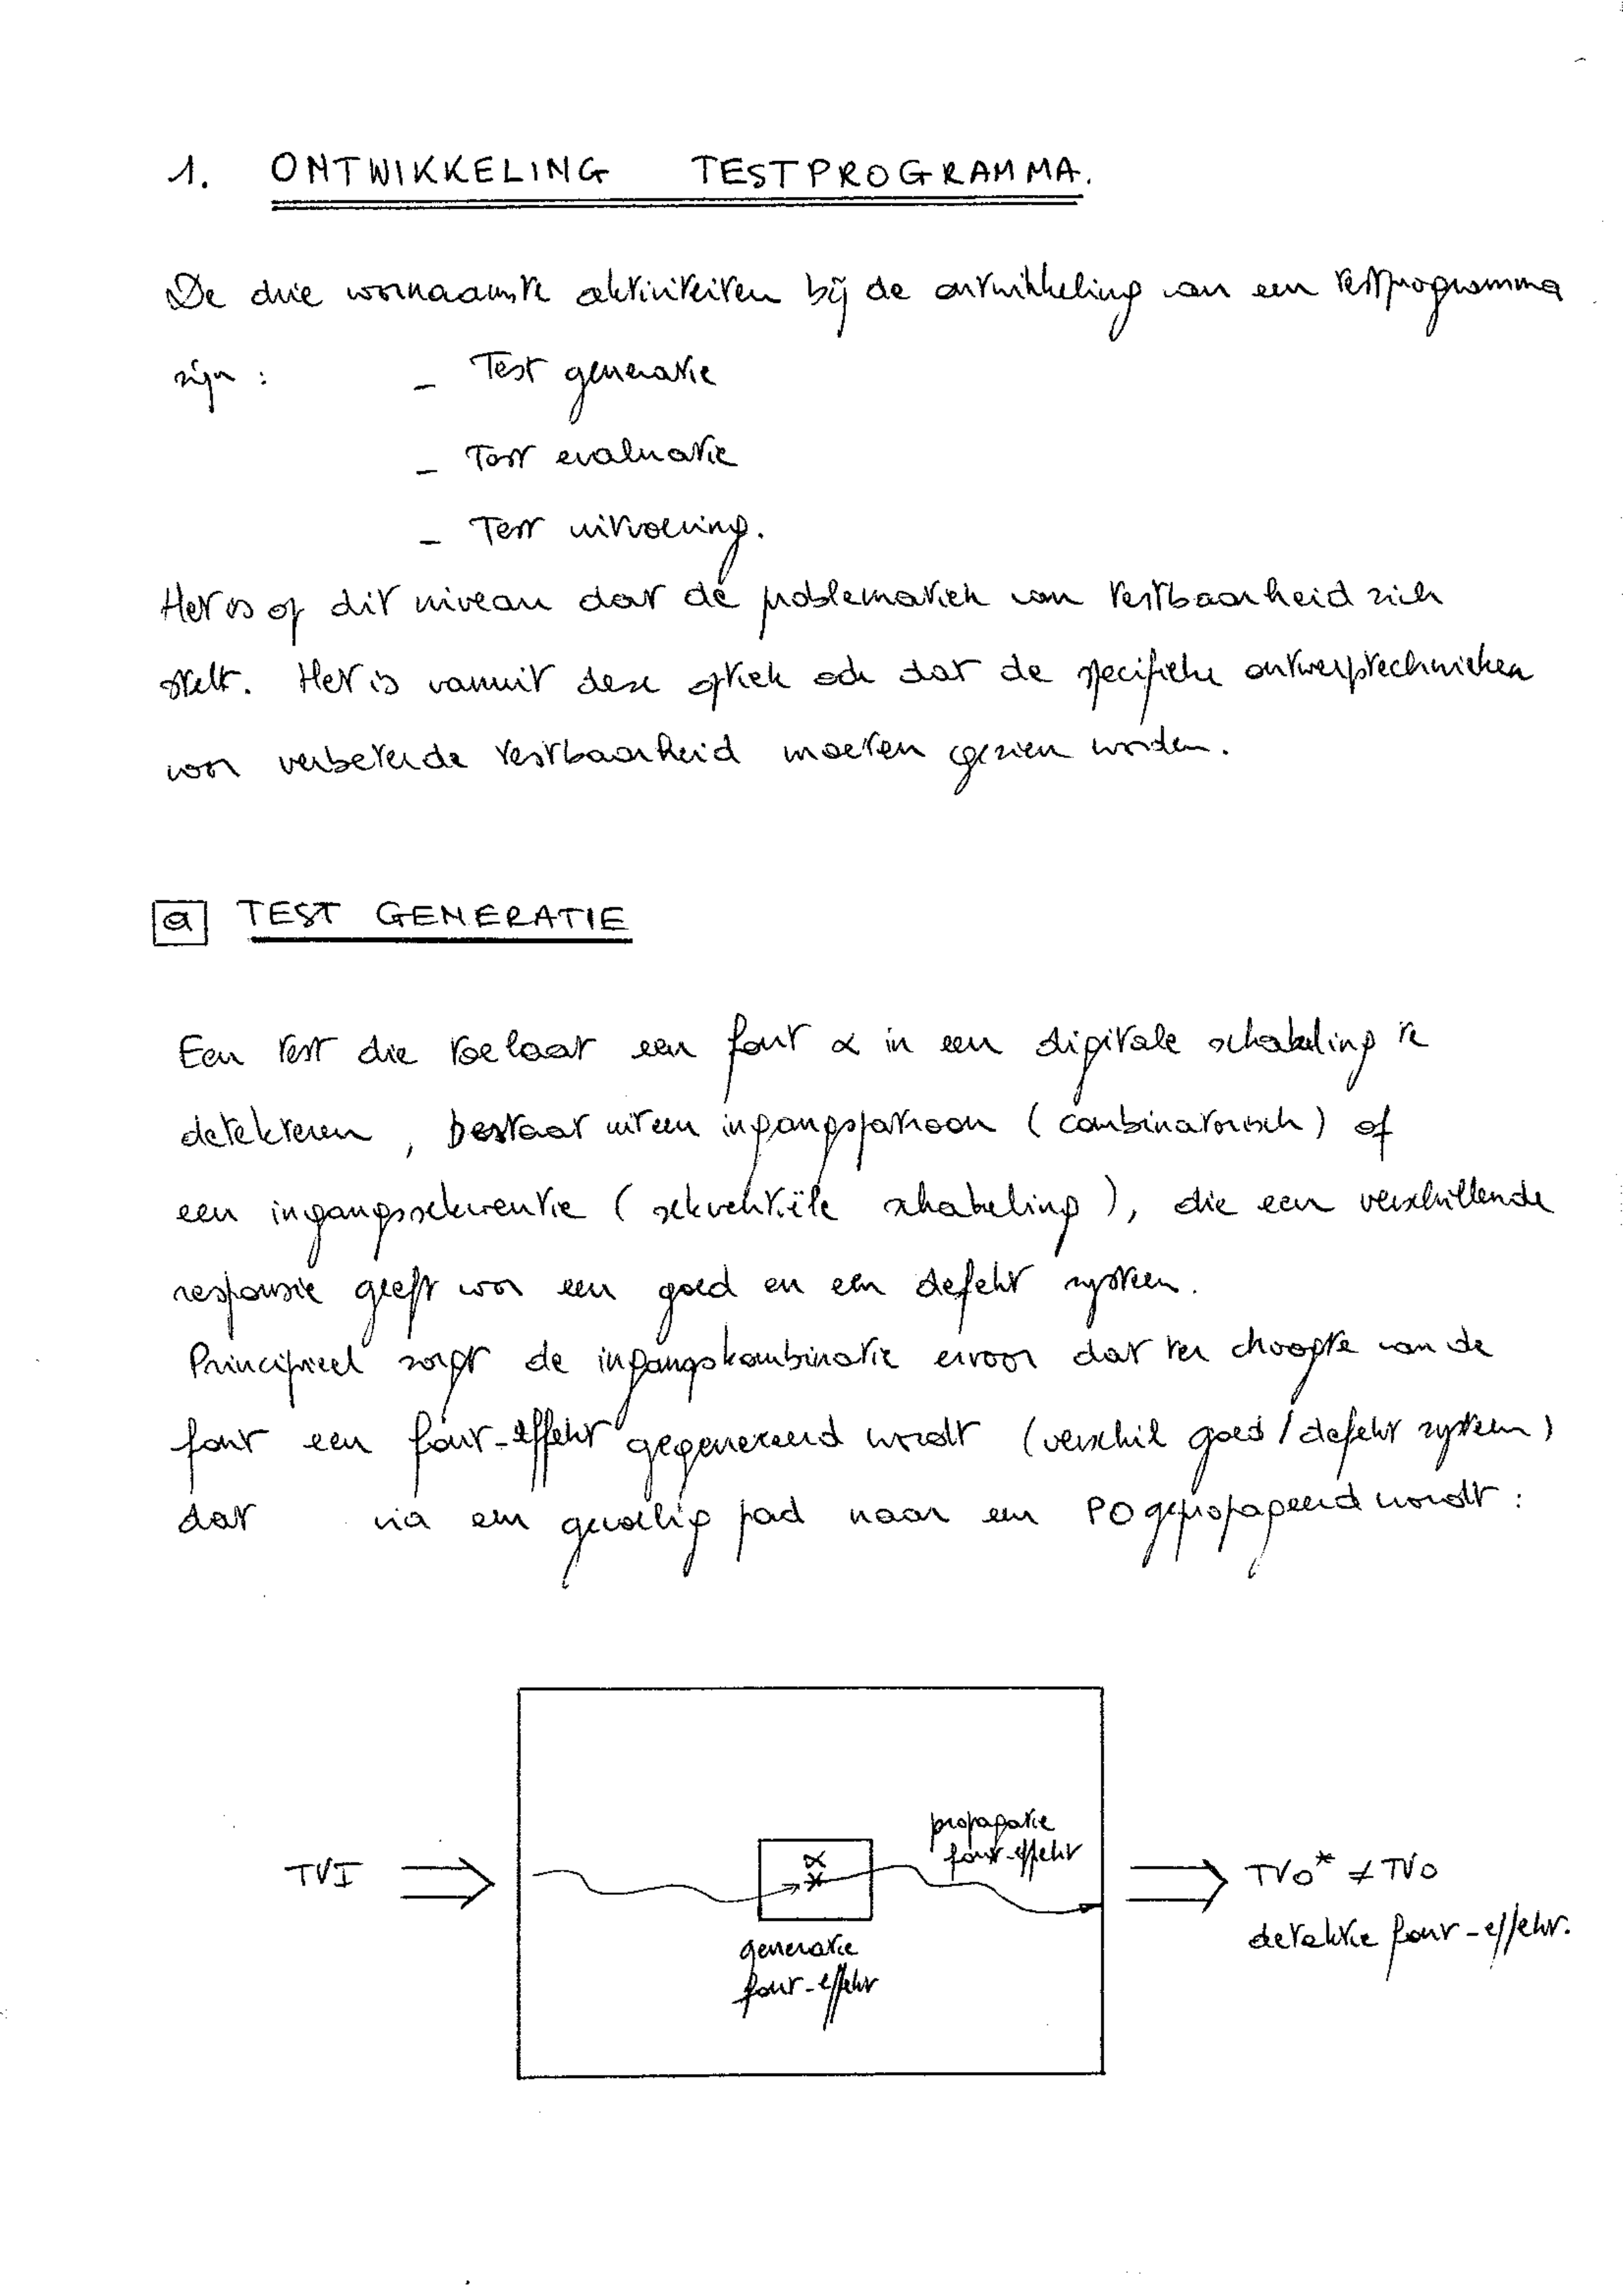 1. ONTWIKKELING TESTPROGRAMMA.
De drie voornaamste aktiviteiten bij de ontwikkeling van een testprogramma
zijn : - Test generatie
- Test evaluatie
- Test uitvoering.
Het is op dit niveau dat de problematiek van testbaarheid zich
stelt. Het is vanuit deze optiek ook dat de specifieke ontwerptechnieken
voor verbeterde testbaarheid moeten gezien worden.
a TEST GENERATIE
Een test die toelaat een fout α in een digitale schakeling te
detekteren , bestaat uit een ingangspatroon ( combinatorisch ) of
een ingangssekwentie ( sekwentiële schakeling ), die een verschillende
responsie geeft voor een goed en een defekt systeem.
Principieel zorgt de ingangskombinatie ervoor dat ter hoogte van de
fout een fout-effekt gegenereerd wordt (verschil goed / defekt systeem)
dat via een gevoelig pad naar een PO gepropageerd wordt :
propagatie
fout-effekt
α
TVI
TVO* ≠ TVO
detektie fout-effekt.
generatie
fout-effekt